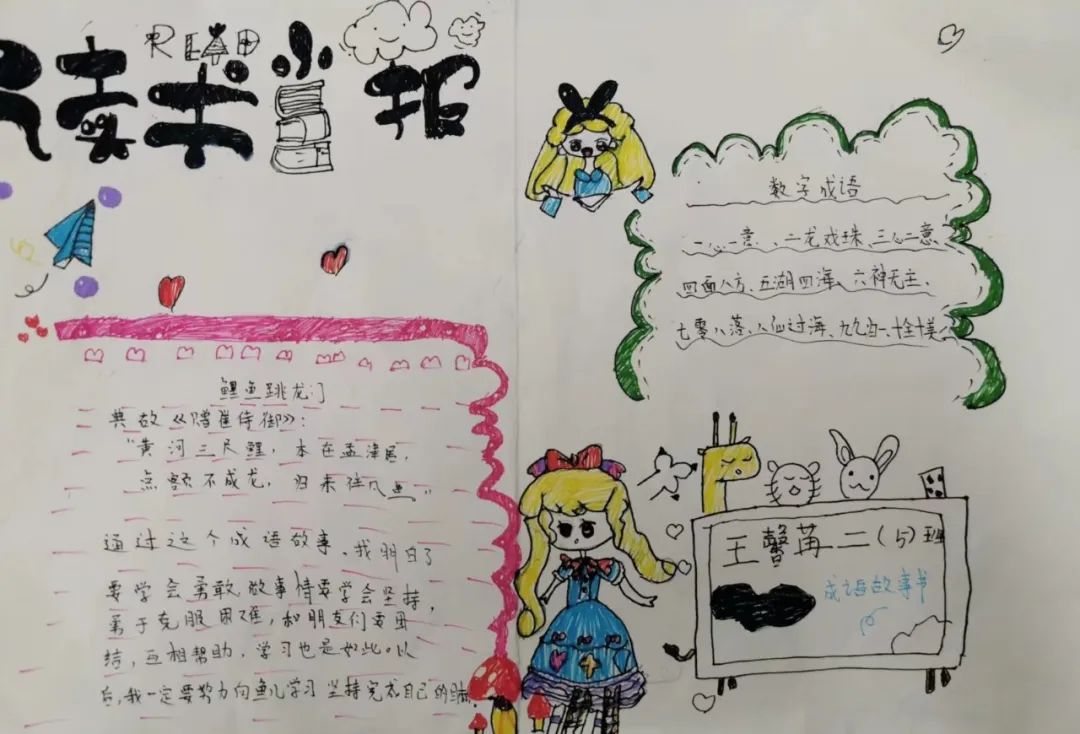 READ
读书小报
鲤鱼跳龙门
典故《赠崔侍御》：
“黄河三尺鲤，本在孟津居，
点额不成龙，归来往凡鱼。
通过这个成语故事，我明白了
要学会勇敢，做事情要学会坚持，
勇于克服困难，和朋友们要团
结，互相帮助，学习也是如此。以
后，我一定要努力向鱼儿学习 坚持完成自己的
数字成语
一心一意、二龙戏珠、三心二意
四面八方、五湖四海、六神无主、
七零八落、八仙过海、九九归一、十全十美
王馨苒二（5）班
成语故事书